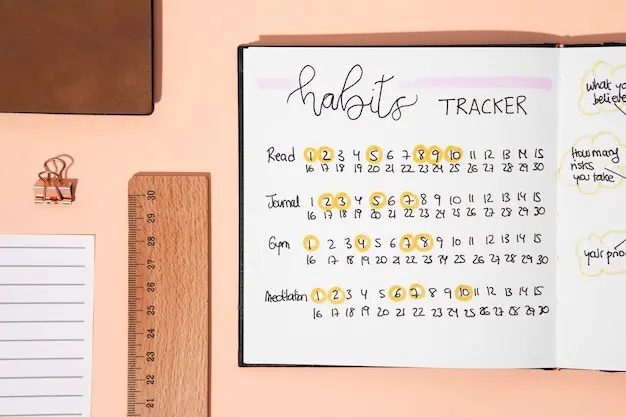 habits TRACKER
Read 1 2 3 4 5 6 7 8 9 10 11 12 13 14 15
16 17 18 19 20 21 22 23 24 25 26 27 28 29 30
Journal 1 2 3 4 5 6 7 8 9 10 11 12 13 14 15
16 17 18 19 20 21 22 23 24 25 26 27 28 29 30
Gym 1 2 3 4 5 6 7 8 9 10 11 12 13 14 15
16 17 18 19 20 21 22 23 24 25 26 27 28 29 30
Meditation 1 2 3 4 5 6 7 8 9 10 11 12 13 14 15
16 17 18 19 20 21 22 23 24 25 26 27 28 29 30
what yo
believe
How many
risks
you take
30 29 28 27 26 25 24 23 22 21